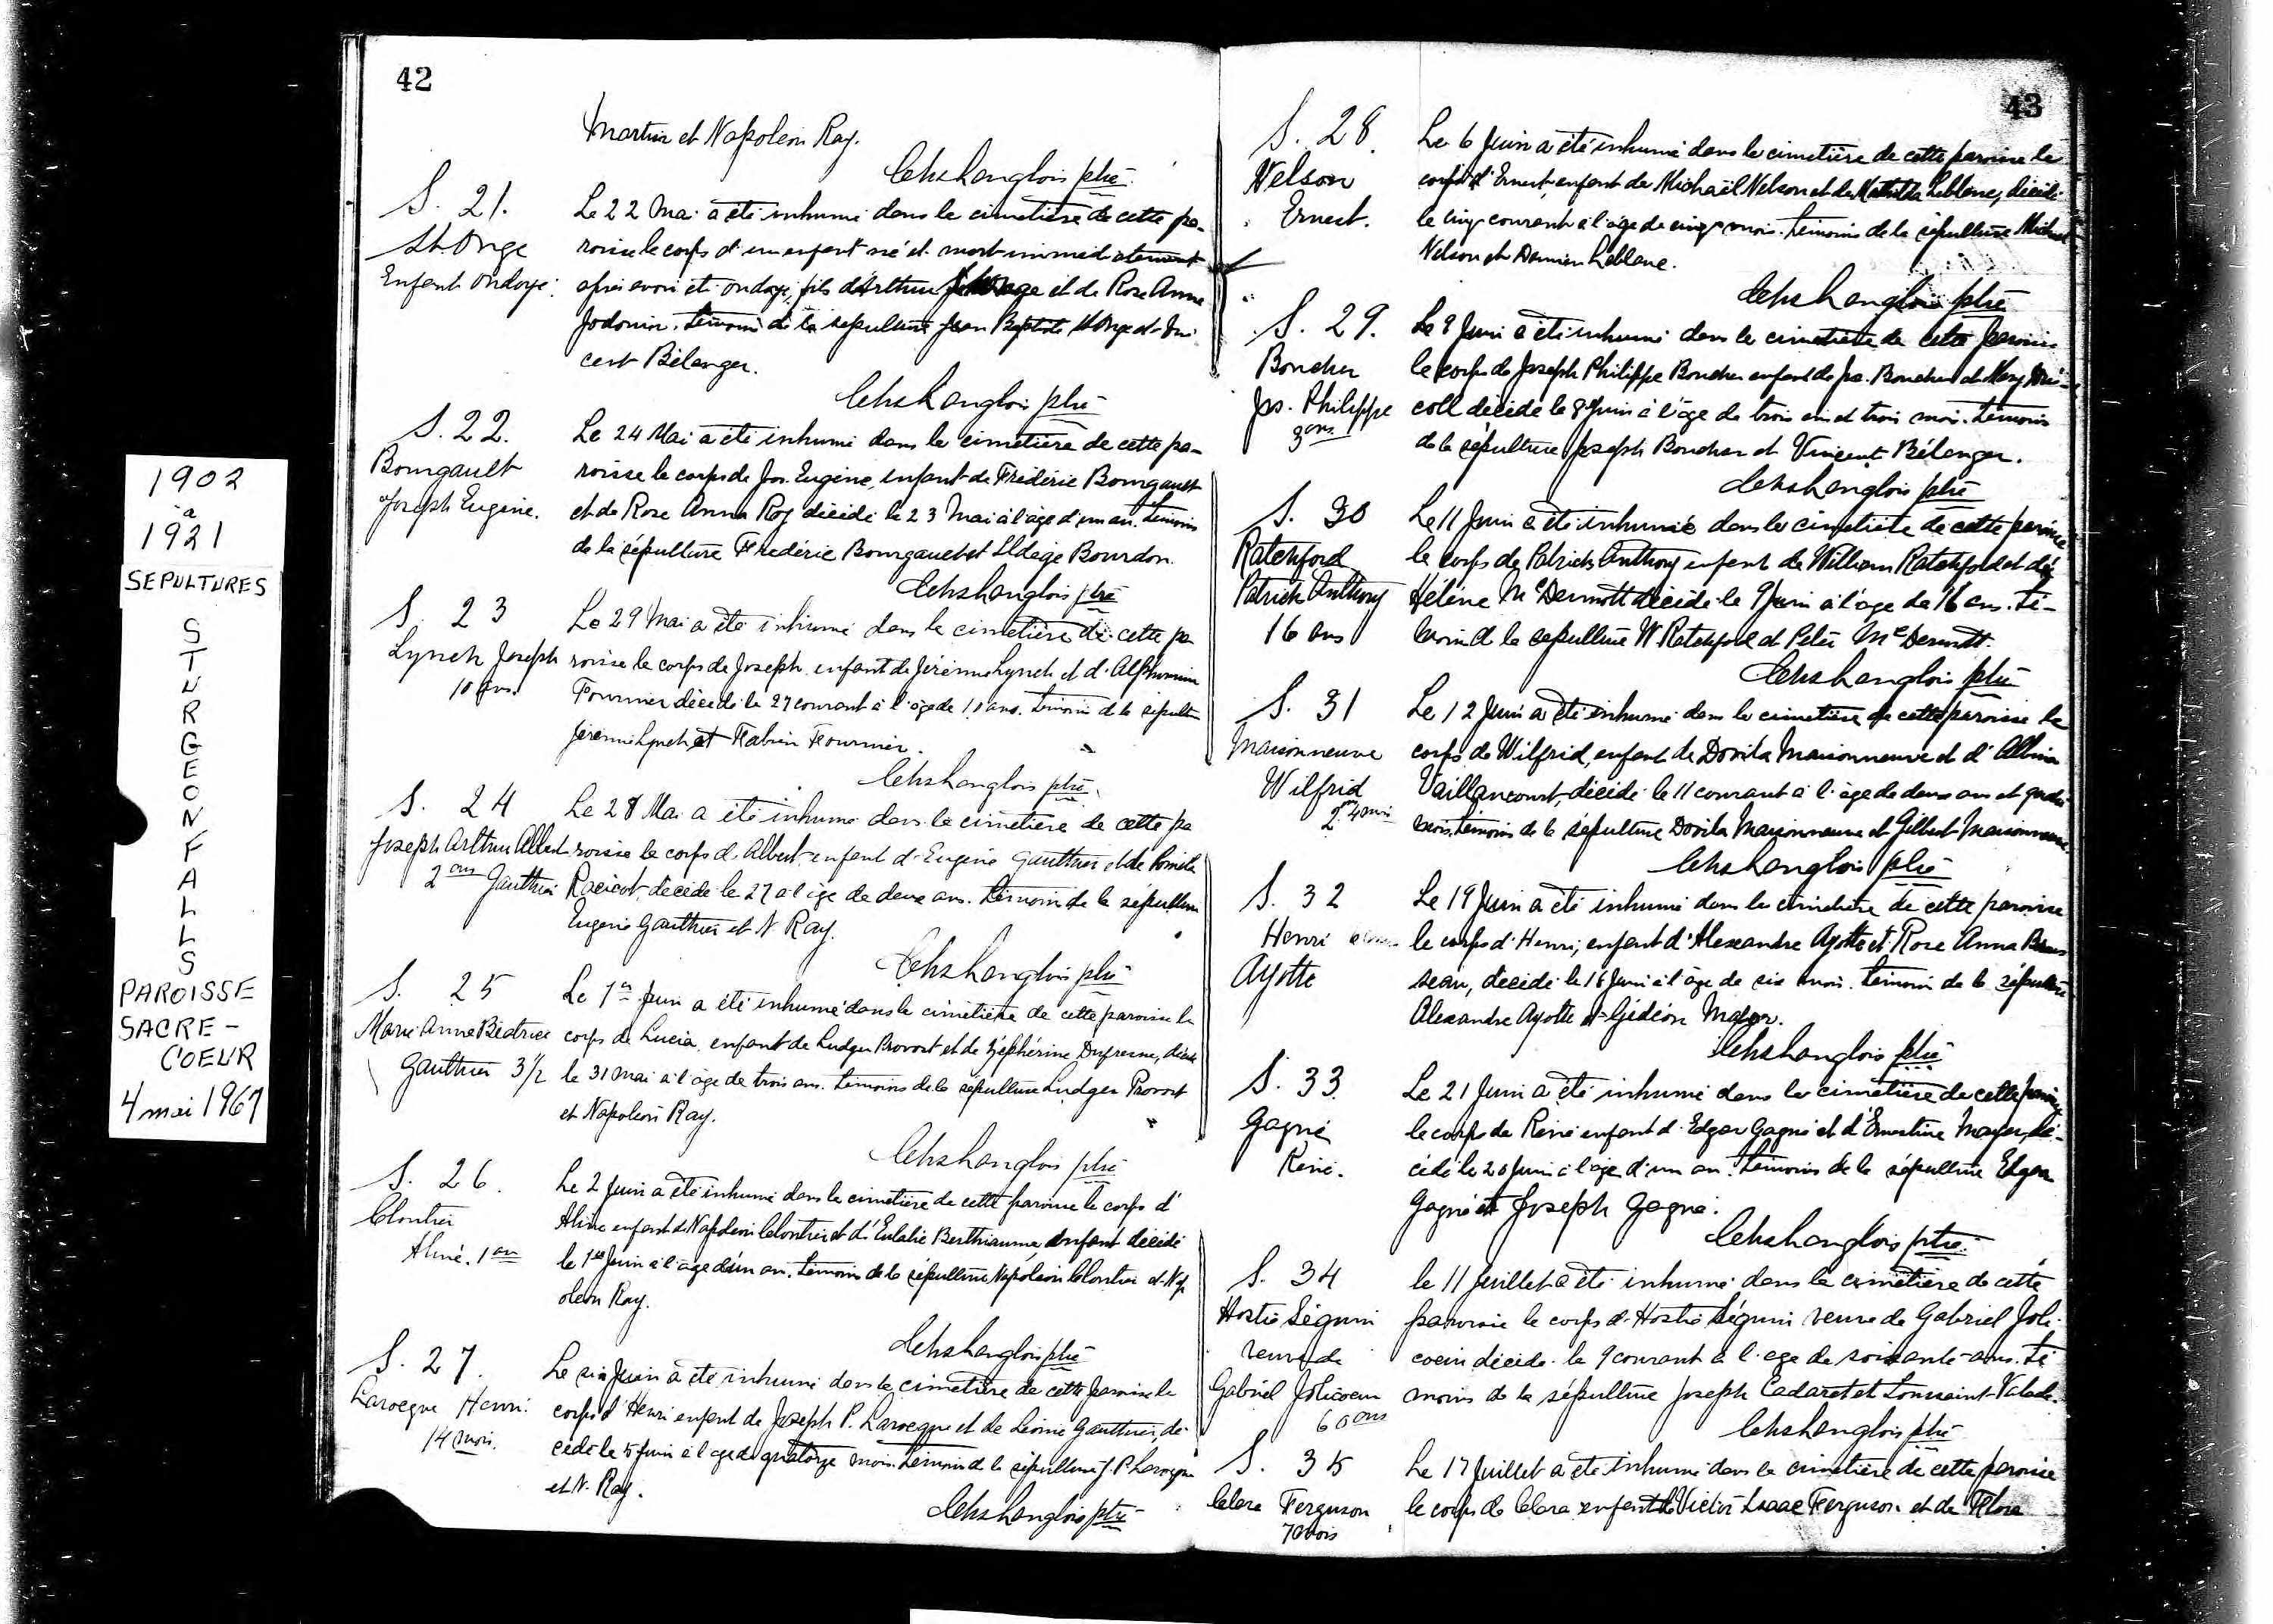 1902
à
1921
SEPULTURES
STURGEON FALLS
PAROISSE
SACRE-
COEUR
4 mai 1967
42
Martin et Napoleon Ray.
Chs Langlois ptre
S. 21.
St. Onge
Enfant ondoyé.
Le 22 Mai a été inhumé dans le cimetière de cette pa-
roisse le corps d'un enfant né et mort immédiatement
après avoir été ondoyé, fils d'Arthur St Onge et de Rose Anne
Jodouin. Témoins de la sépulture Jean Baptiste St Onge et Vin
cent Bélanger.
Chs Langlois ptre
S. 22.
Bourgault
Joseph Eugène.
Le 24 Mai a été inhumé dans le cimetière de cette pa-
roisse le corps de Jos. Eugène, enfant de Frédéric Bourgault
et de Rose Anna Roy décédé le 23 Mai à l'âge d'un an. Témoins
de la sépulture Frédéric Bourgault et Ildège Bourdon.
Chs Langlois ptre
S. 23
Lynch Joseph
10 ans.
Le 29 Mai a été inhumé dans le cimetière de cette pa
roisse le corps de Joseph enfant de Jérémie Lynch et d'Alphonsine
Fournier décédé le 27 courant à l'âge de 10 ans. Témoins de la sépulture
Jérémie Lynch et Fabien Fournier.
Chs Langlois ptre
S. 24
Joseph Arthur Albert
2 ans Gauthier
Le 28 Mai a été inhumé dans le cimetière de cette pa
roisse le corps d'Albert enfant d'Eugène Gauthier et de
Racicot décédé le 27 à l'âge de deux ans. Témoins de la sépulture
Eugène Gauthier et N Ray.
Chs Langlois ptre
S. 25
Marie Anne Béatrice
Gauthier 3 1/2
Le 1er Juin a été inhumé dans le cimetière de cette paroisse le
corps de Lucia enfant de Ludger Provost et de Zéphérine Dufresne, décédé
le 31 Mai à l'âge de trois ans. Témoins de la sépulture Ludger Provost
et Napoléon Ray.
Chs Langlois ptre
S. 26.
Cloutier
Aliné. 1 an
Le 2 Juin a été inhumé dans le cimetière de cette paroisse le corps d'
Aline enfant de Napoléon Cloutier et d'Eulalie Berthiaume enfant décédé
le 1er Juin à l'âge d'un an. Témoins de la sépulture Napoléon Cloutier et Nap
oleon Ray.
Chs Langlois ptre
S. 27.
Larocque Henri.
14 mois.
Le six Juin a été inhumé dans le cimetière de cette paroisse le
corps d'Henri enfant de Joseph P. Larocque et de Léonie Gauthier, dé-
cédé le 5 Juin à l'age de quatorze mois. Témoins de la sépulture J. P. Larocque
et N. Ray.
Chs Langlois ptre
43
S. 28.
Nelson
Ernest.
Le 6 Juin a été inhumé dans le cimetière de cette paroisse le
corps d'Ernest, enfant de Michaël Nelson et de Mathilda Leblanc, décédé
le cinq courant à l'âge de cinq mois. Témoins de la sépulture Michael
Nelson et Damien Leblanc.
Chs Langlois ptre
S. 29.
Boucher
Jos. Philippe
3 ans
Le 9 Juin a été inhumé dans le cimetière de cette paroisse
le corps de Joseph Philippe Boucher enfant de Jos. Boucher et Mary
coll décédé le 8 Juin à l'âge de trois ans et trois mois. Témoins
de la sépulture Joseph Boucher et Vincent Bélanger.
Chs Langlois ptre
S. 30
Ratchford
Patrick Anthony
16 ans
Le 11 Juin a été inhumé dans le cimetière de cette paroisse
le corps de Patrick Anthony enfant de William Ratchford et de
Hélène McDermott décédé le 9 Juin à l'âge de 16 ans. Té-
moins de la sépulture W. Ratchford et Peter McDermott.
Chs Langlois ptre
S. 31
Maisonneuve
Wilfrid
2 ans 4 mois
Le 12 Juin a été inhumé dans le cimetière de cette paroisse le
corps de Wilfrid, enfant de Dovila Maisonneuve et d'Albina
Vaillancourt, décédé le 11 courant à l'âge de deux ans et quatre
mois. Témoins de la sépulture Dovila Maisonneuve et Gilbert Maisonneuve.
Chs Langlois ptre
S. 32
Henri
Ayotte
Le 19 Juin a été inhumé dans le cimetière de cette paroisse
le corps d'Henri, enfant d'Alexandre Ayotte et Rose Anna
seau, décédé le 18 Juin à l'âge de six mois. Témoins de la sépulture
Alexandre Ayotte et Gédéon Mayer.
Chs Langlois ptre
S. 33.
Gagné
René.
Le 21 Juin a été inhumé dans le cimetière de cette paroisse
le corps de René enfant d'Edgar Gagné et d'Ernestine Mayer, dé-
cédé le 20 Juin à l'âge d'un an. Témoins de la sépulture Edgar
Gagné et Joseph Gagné.
Chs Langlois ptre.
S. 34
Hostie Séguin
veuve de
Gabriel Jolicoeur
60 ans
le 11 Juillet a été inhumé dans le cimetière de cette
paroisse le corps d'Hostie Séguin veuve de Gabriel Joli-
coeur décédé le 9 courant à l'age de soixante ans. Té
moins de la sépulture Joseph Cadaret et Toussaint Valade.
Chs Langlois ptre
S. 35
Clara Ferguson
7 mois
Le 17 Juillet a été inhumé dans le cimetière de cette paroisse
le corps de Clara enfant de Victor Isaac Ferguson et de Flora